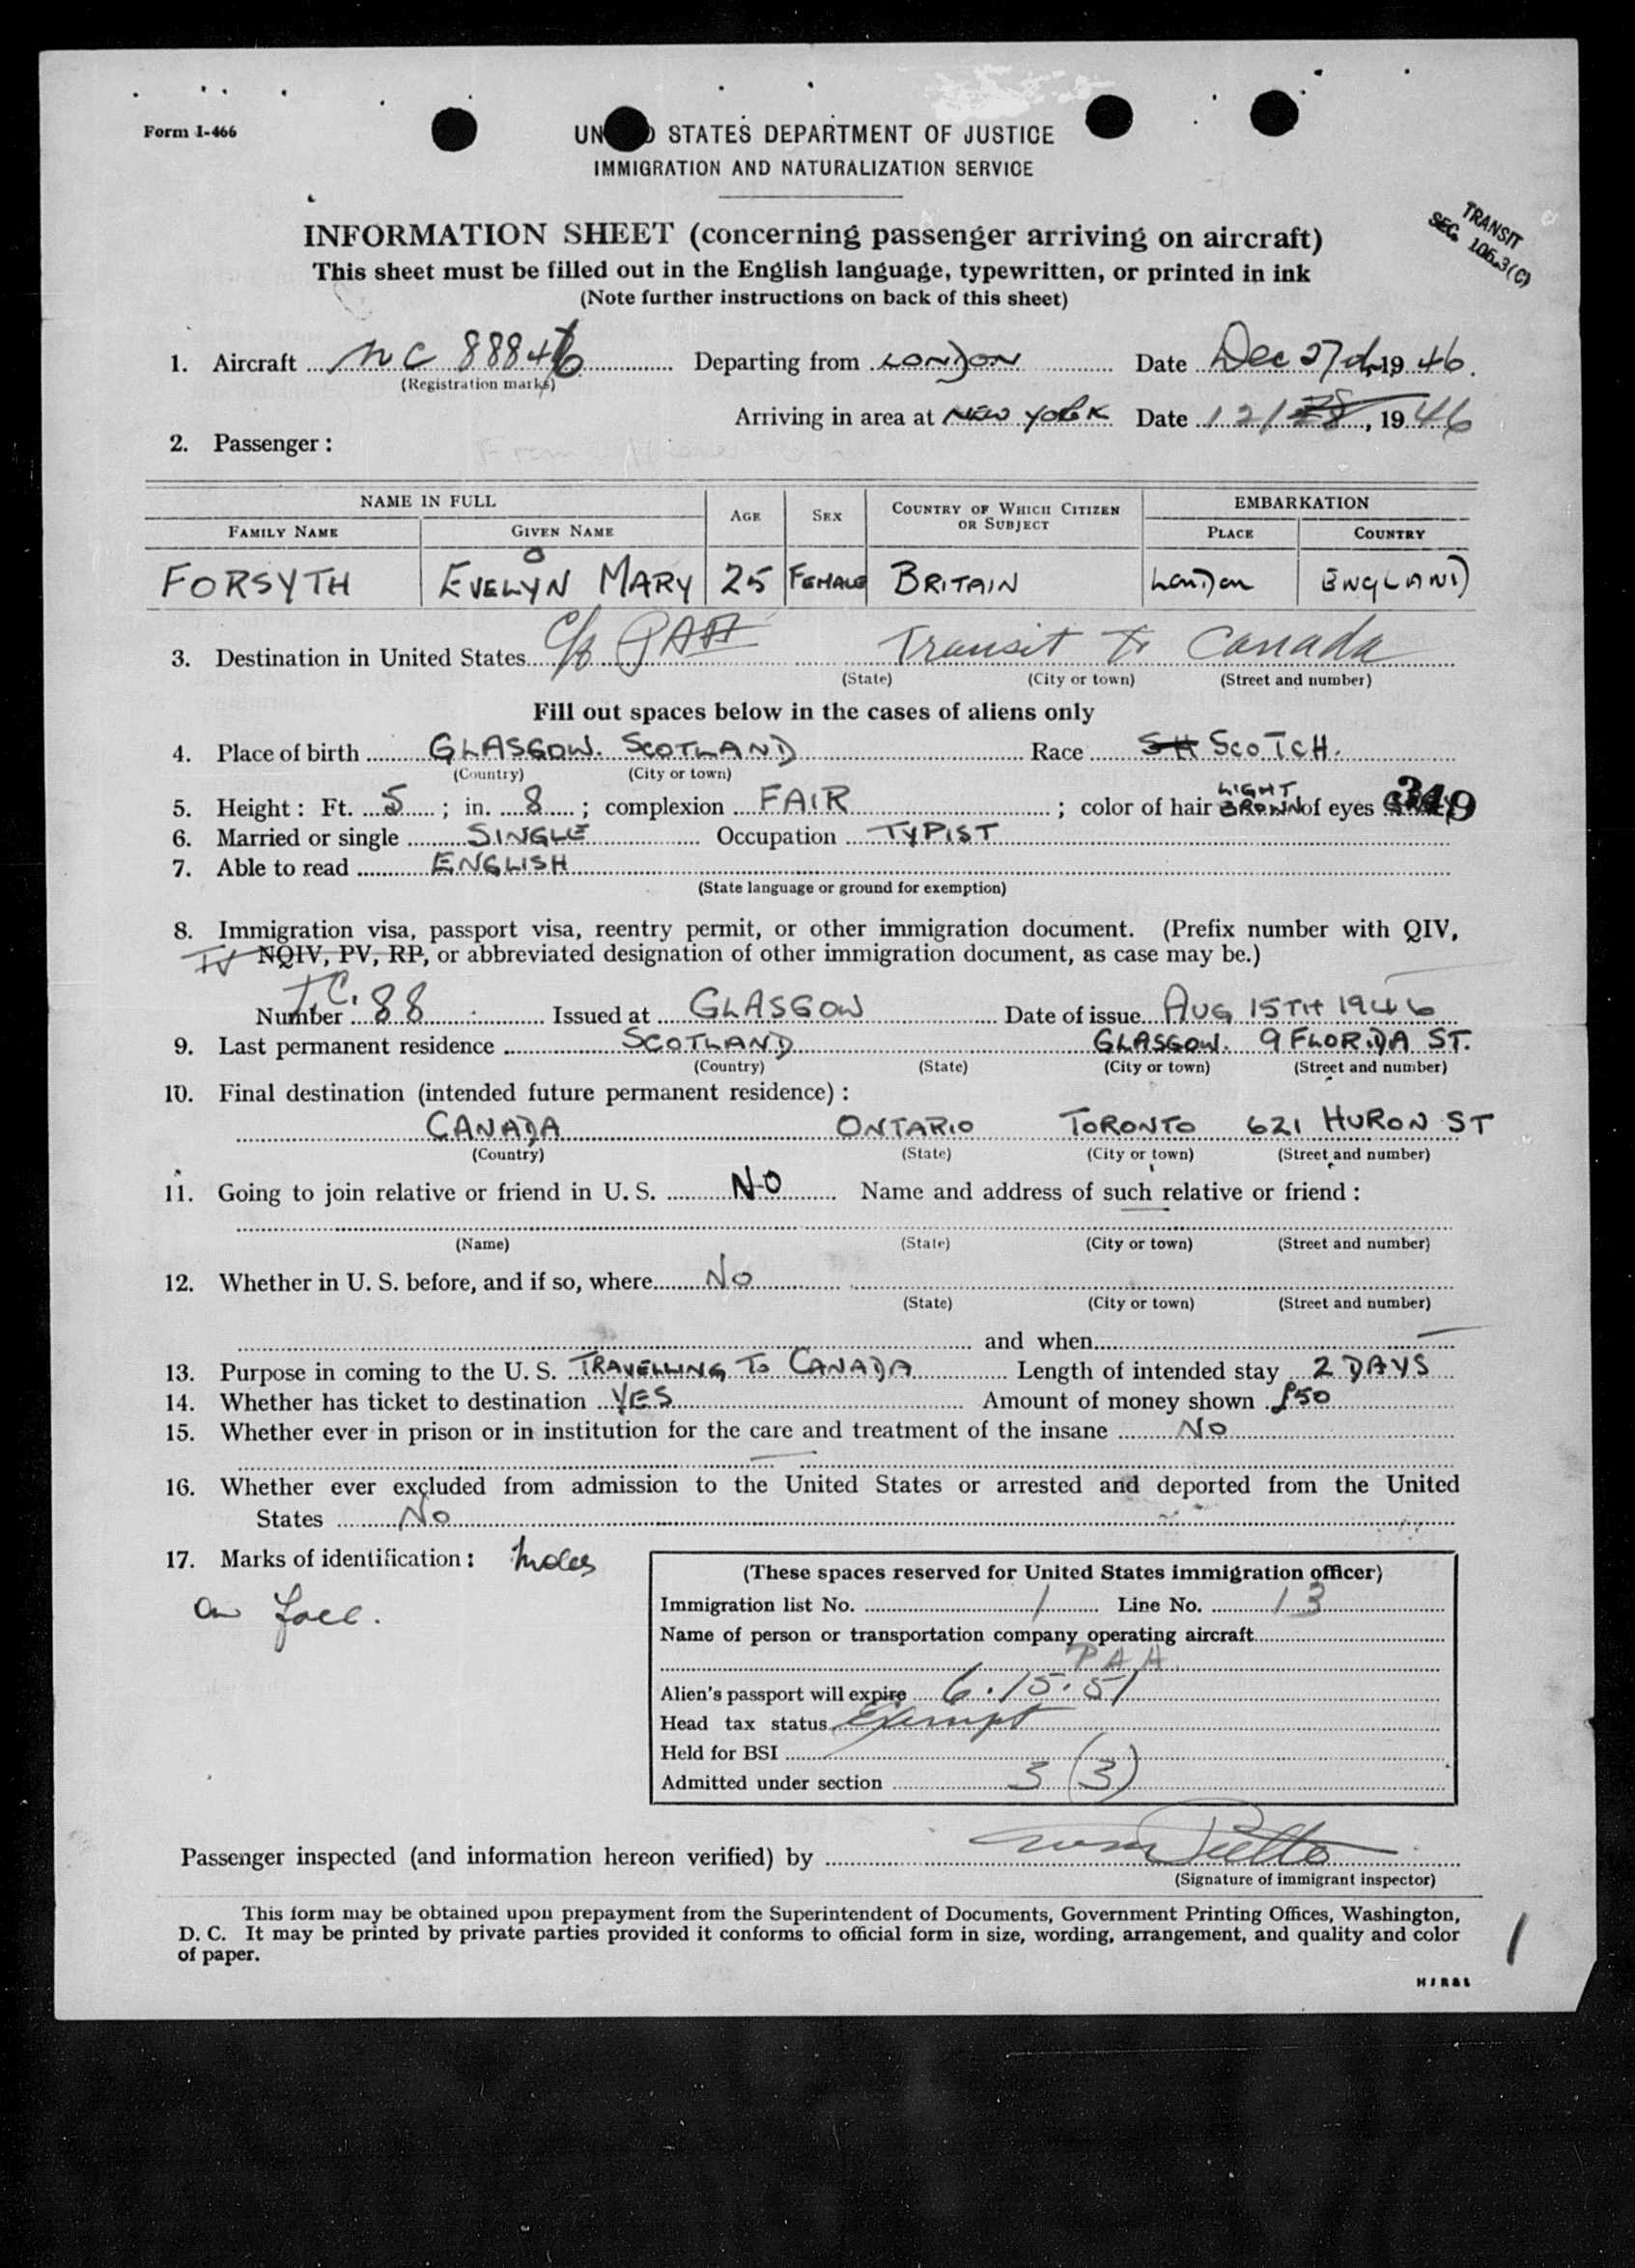 Form I-466
UN D STATES DEPARTMENT OF JUSTICE
IMMIGRATION AND NATURALIZATION SERVICE
TRANSIT
SEC. 106.3(C)
INFORMATION SHEET (concerning passenger arriving on aircraft)
This sheet must be filled out in the English language, typewritten, or printed in ink
(Note further instructions on back of this sheet)
1. Aircraft NC 88846 Departing from LONDON Date Dec 27th, 1946.
(Registration marks)
Arriving in area at NEW YORK Date 12/28, 1946
2. Passenger:
NAME IN FULL AGE SEX COUNTRY OF WHICH CITIZEN OR SUBJECT EMBARKATION
FAMILY NAME GIVEN NAME PLACE COUNTRY
FORSYTH EVELYN MARY 25 FEMALE BRITAIN London ENGLAND
3. Destination in United States c/o PAA Transit to Canada
(State) (City or town) (Street and number)
Fill out spaces below in the cases of aliens only
4. Place of birth GLASGOW. SCOTLAND Race SH SCOTCH.
(Country) (City or town)
5. Height: Ft. 5; in. 8; complexion FAIR; color of hair LIGHT BROWN of eyes 349
6. Married or single SINGLE Occupation TYPIST
7. Able to read ENGLISH
(State language or ground for exemption)
8. Immigration visa, passport visa, reentry permit, or other immigration document. (Prefix number with QIV,
TV NQIV, PV, RP, or abbreviated designation of other immigration document, as case may be.)
Number T.C. 88 Issued at GLASGOW Date of issue AUG 15TH 1946
9. Last permanent residence SCOTLAND GLASGOW. 9 FLORIDA ST.
(Country) (State) (City or town) (Street and number)
10. Final destination (intended future permanent residence):
CANADA ONTARIO TORONTO 621 HURON ST
(Country) (State) (City or town) (Street and number)
11. Going to join relative or friend in U. S. NO Name and address of such relative or friend:
(Name) (State) (City or town) (Street and number)
12. Whether in U. S. before, and if so, where No
(State) (City or town) (Street and number)
and when
13. Purpose in coming to the U. S. TRAVELLING TO CANADA Length of intended stay 2 DAYS
14. Whether has ticket to destination YES Amount of money shown £50
15. Whether ever in prison or in institution for the care and treatment of the insane No
16. Whether ever excluded from admission to the United States or arrested and deported from the United
States No
17. Marks of identification: Moles
on face.
(These spaces reserved for United States immigration officer)
Immigration list No. 1 Line No. 13
Name of person or transportation company operating aircraft
PAA
Alien's passport will expire 6.15.51
Head tax status Exempt
Held for BSI
Admitted under section 3 (3)
Passenger inspected (and information hereon verified) by
(Signature of immigrant inspector)
This form may be obtained upon prepayment from the Superintendent of Documents, Government Printing Offices, Washington,
D. C. It may be printed by private parties provided it conforms to official form in size, wording, arrangement, and quality and color
of paper.
1